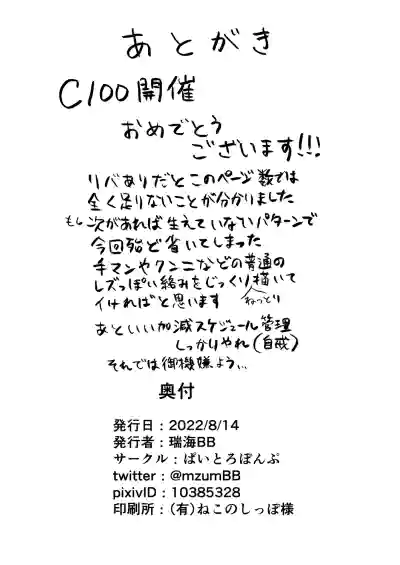 あとがき
C100開催
おめでとう
ございます!!!
リバありだとこのページ数では
全く足りないことが分かりました
もし次があれば生えていないパターンで
今回殆ど省いてしまった
手マンやクンニなどの普通の
レズっぽい絡みをじっくり描いて
ねっとり
イければと思います
あといい加減スケジュール管理
しっかりやれ(自戒)
それでは御機嫌よう…
奥付
発行日:2022/8/14
発行者:瑞海BB
サークル:ぱいとろぼんぷ
twitter:@mzumBB
pixivID:10385328
印刷所:(有)ねこのしっぽ様